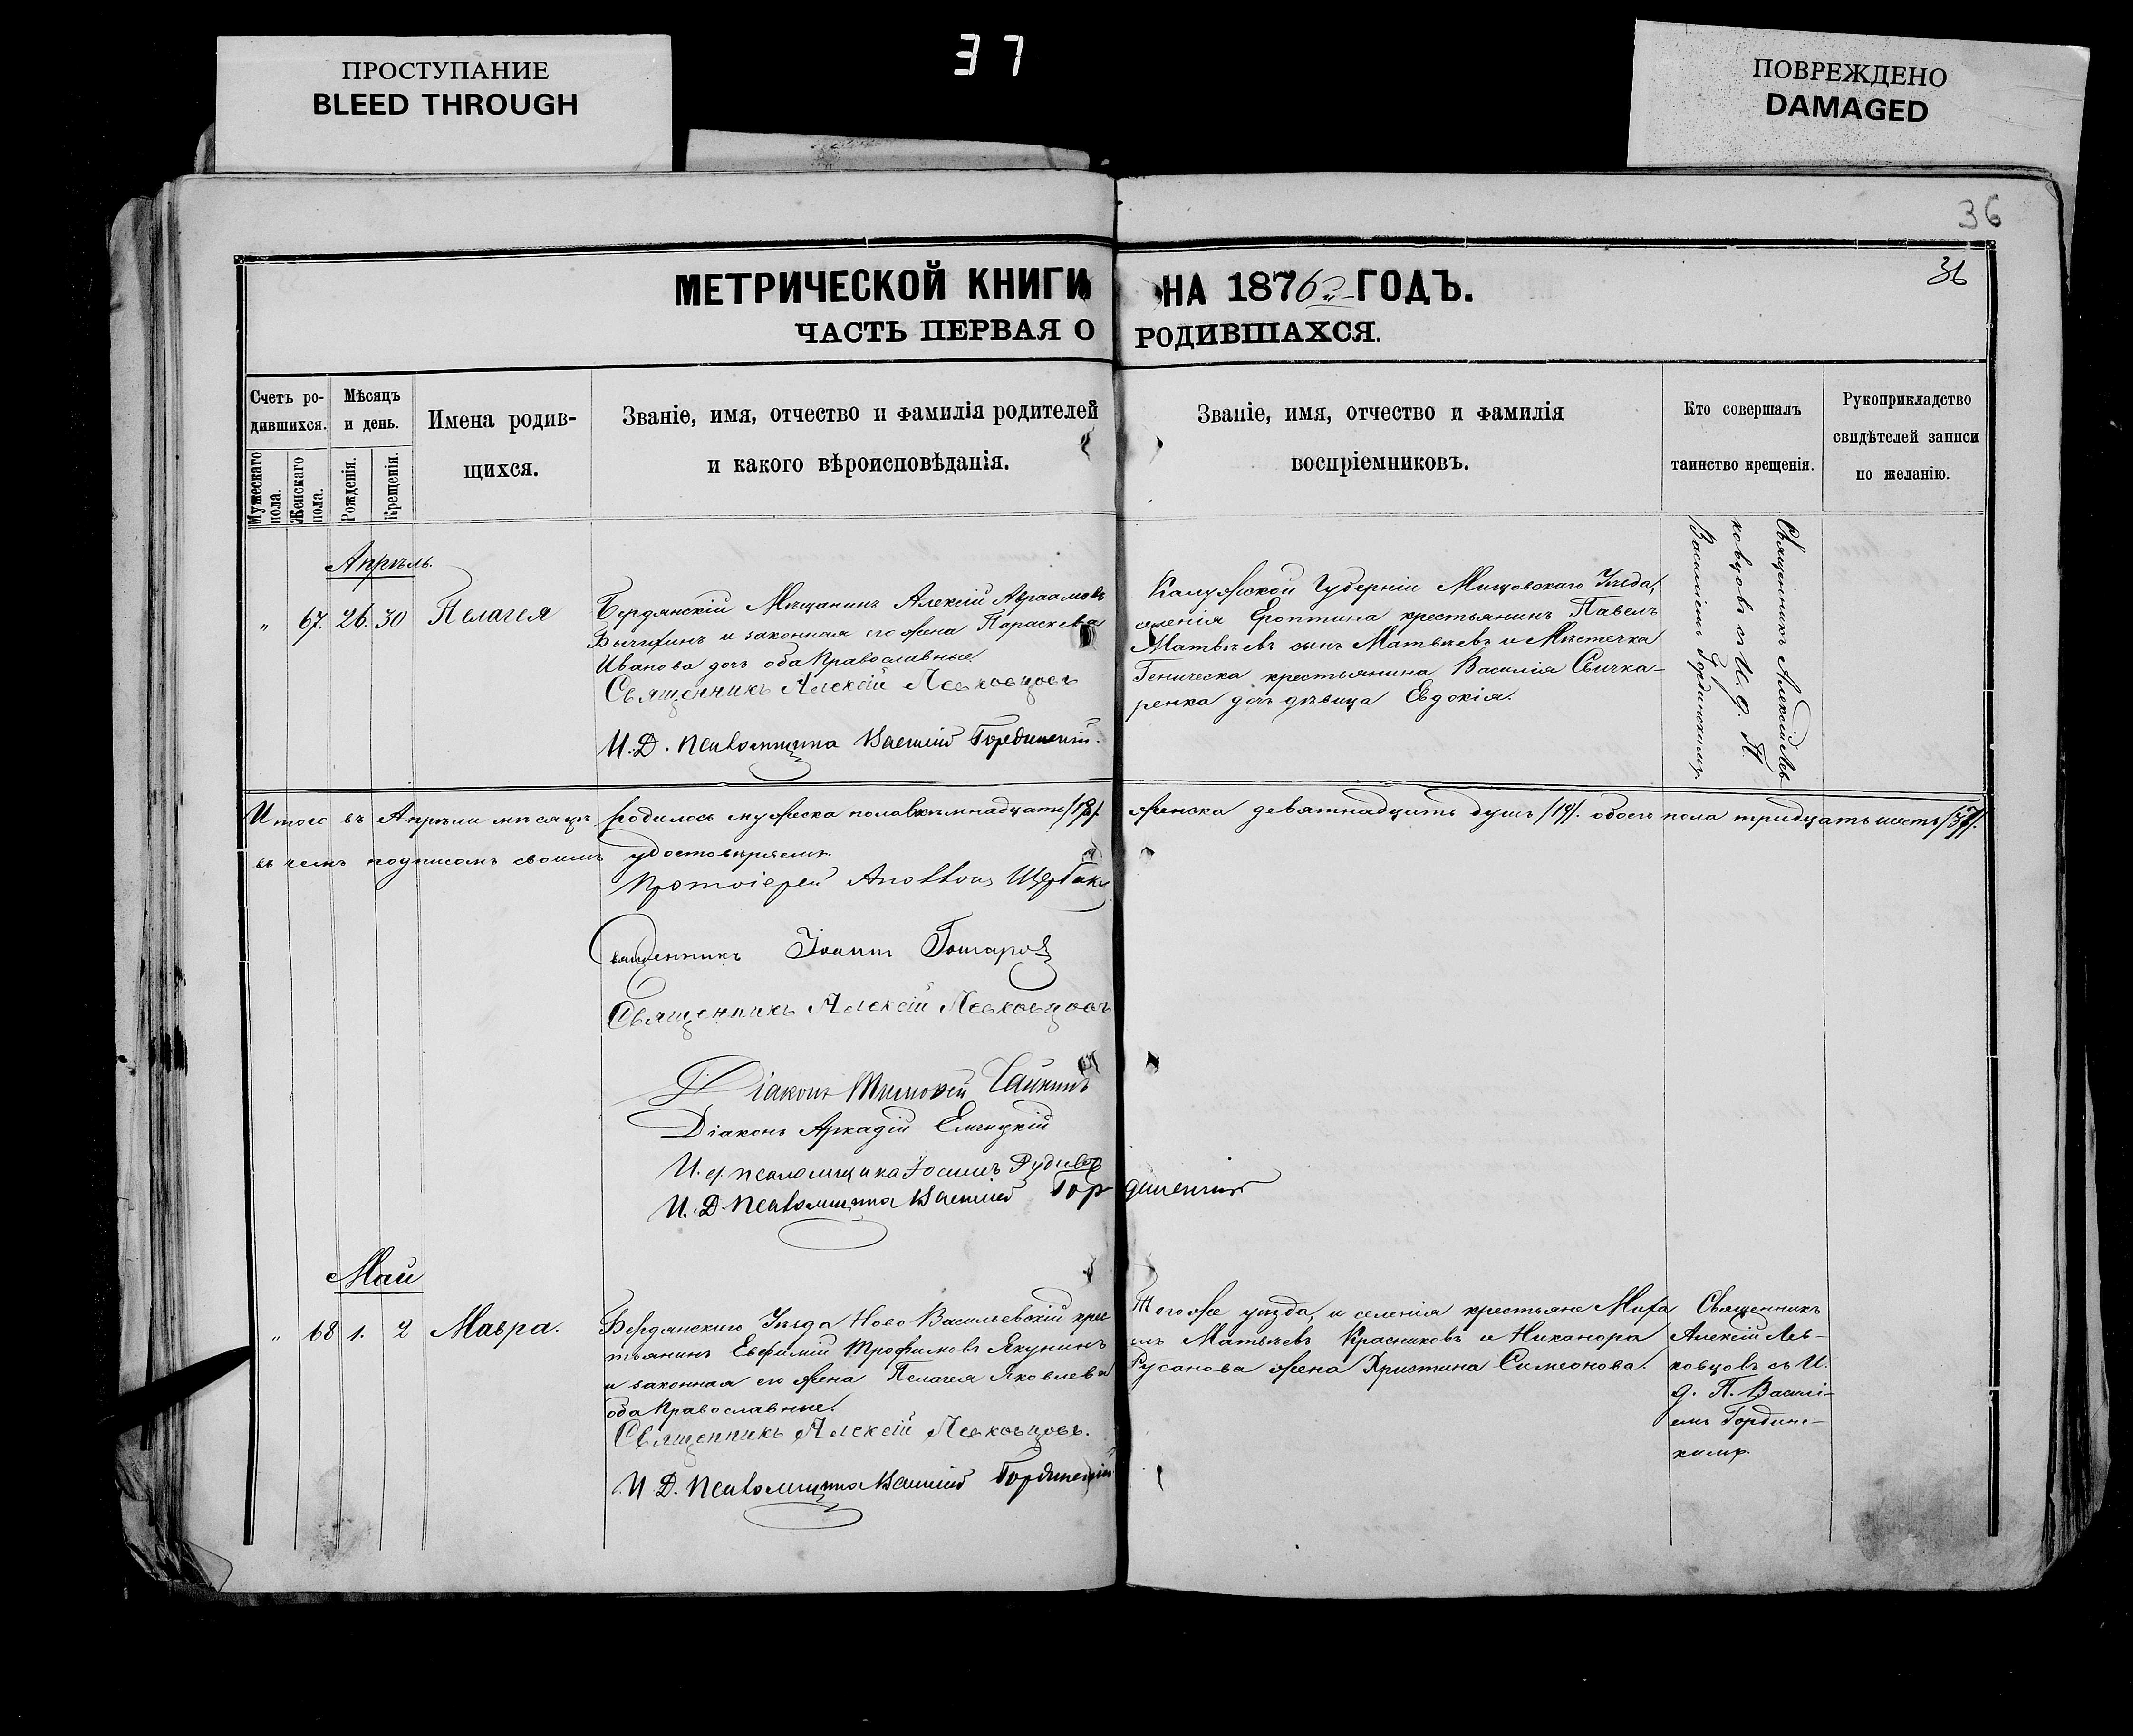 ПРОСТУПАНИЕ
BLEED THROUGH
37
ПОВРЕЖДЕНО
DAMAGED
36
36
МЕТРИЧЕСКОЙ КНИГИ НА 1876й ГОДЪ.
ЧАСТЬ ПЕРВАЯ О РОДИВШАХСЯ.
Счетъ ро-
дившихся.
Мужескаго пола.
Женскаго пола.
Мѣсяцъ
и день.
Рожденія.
Крещенія.
Имена родив-
шихся.
Званіе, имя, отчество и фамилія родителей
и какого вѣроисповѣданія.
Званіе, имя, отчество и фамилія
воспріемниковъ.
Кто совершалъ
таинство крещенія.
Рукоприкладство
свидѣтелей записи
по желанію.
Апрѣль.
„ 67. 26. 30 Пелагея
Бердянскій Мѣщанинъ Алексій Авраамовъ
и законная его жена Параскева
Иванова дочь оба Православные.
Священникъ Алексій Левковцовъ
И. Д. Псаломщика Василій Гординскій.
Калужской Губерніи Мищовскаго Уѣзда,
селенія Ероптина крестьянинъ Павелъ
Матвѣевъ сынъ Матвѣевъ и Мѣстечка
Геническа крестьянина Василія Свичка-
ренка дочь дѣвица Евдокія.
Священникъ Алексій Лев-
ковцовъ съ И. д. П.
Василіемъ Гординскимъ.
Итого въ Апрѣли мѣсяцѣ родилось мужеска пола восемнадцать /18/. женска девятнадцать душъ /19/. обоего пола тридцать шесть /37/.
въ чемъ подписомъ своимъ удостовѣряемъ
Протоіерей
Священникъ Іоаннъ
Священникъ Алексій Левковцовъ
Діаконъ Тимофей
Діаконъ Аркадій
И. д. псаломщика
И. Д. Псаломщика Василій Гординскій
Май
„ 68 1. 2 Мавра.
Бердянскаго Уѣзда Ново Васильевскій крес
тьянинъ Евфимій Трофимовъ Якунинъ
и законная его жена Пелагея Яковлева
оба Православные.
Священникъ Алексій Левковцовъ.
И Д. Псаломщика Василій Гординскій
Того же уѣзда, и селенія крестьяне Миха
илъ Матвѣевъ Красниковъ и Никанора
Русанова жена Христина Симеонова.
Священникъ
Алексій Лев-
ковцовъ съ И.
д. П. Василі-
емъ Гординс-
кимъ.